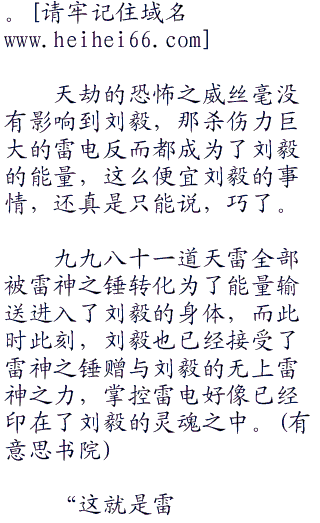 。[请牢记住域名
www.heihei66.com]
天劫的恐怖之威丝毫没
有影响到刘毅，那杀伤力巨
大的雷电反而都成为了刘毅
的能量，这么便宜刘毅的事
情，还真是只能说，巧了。
九九八十一道天雷全部
被雷神之锤转化为了能量输
送进入了刘毅的身体，而此
时此刻，刘毅也已经接受了
雷神之锤赠与刘毅的无上雷
神之力，掌控雷电好像已经
印在了刘毅的灵魂之中。(有
意思书院)
“这就是雷